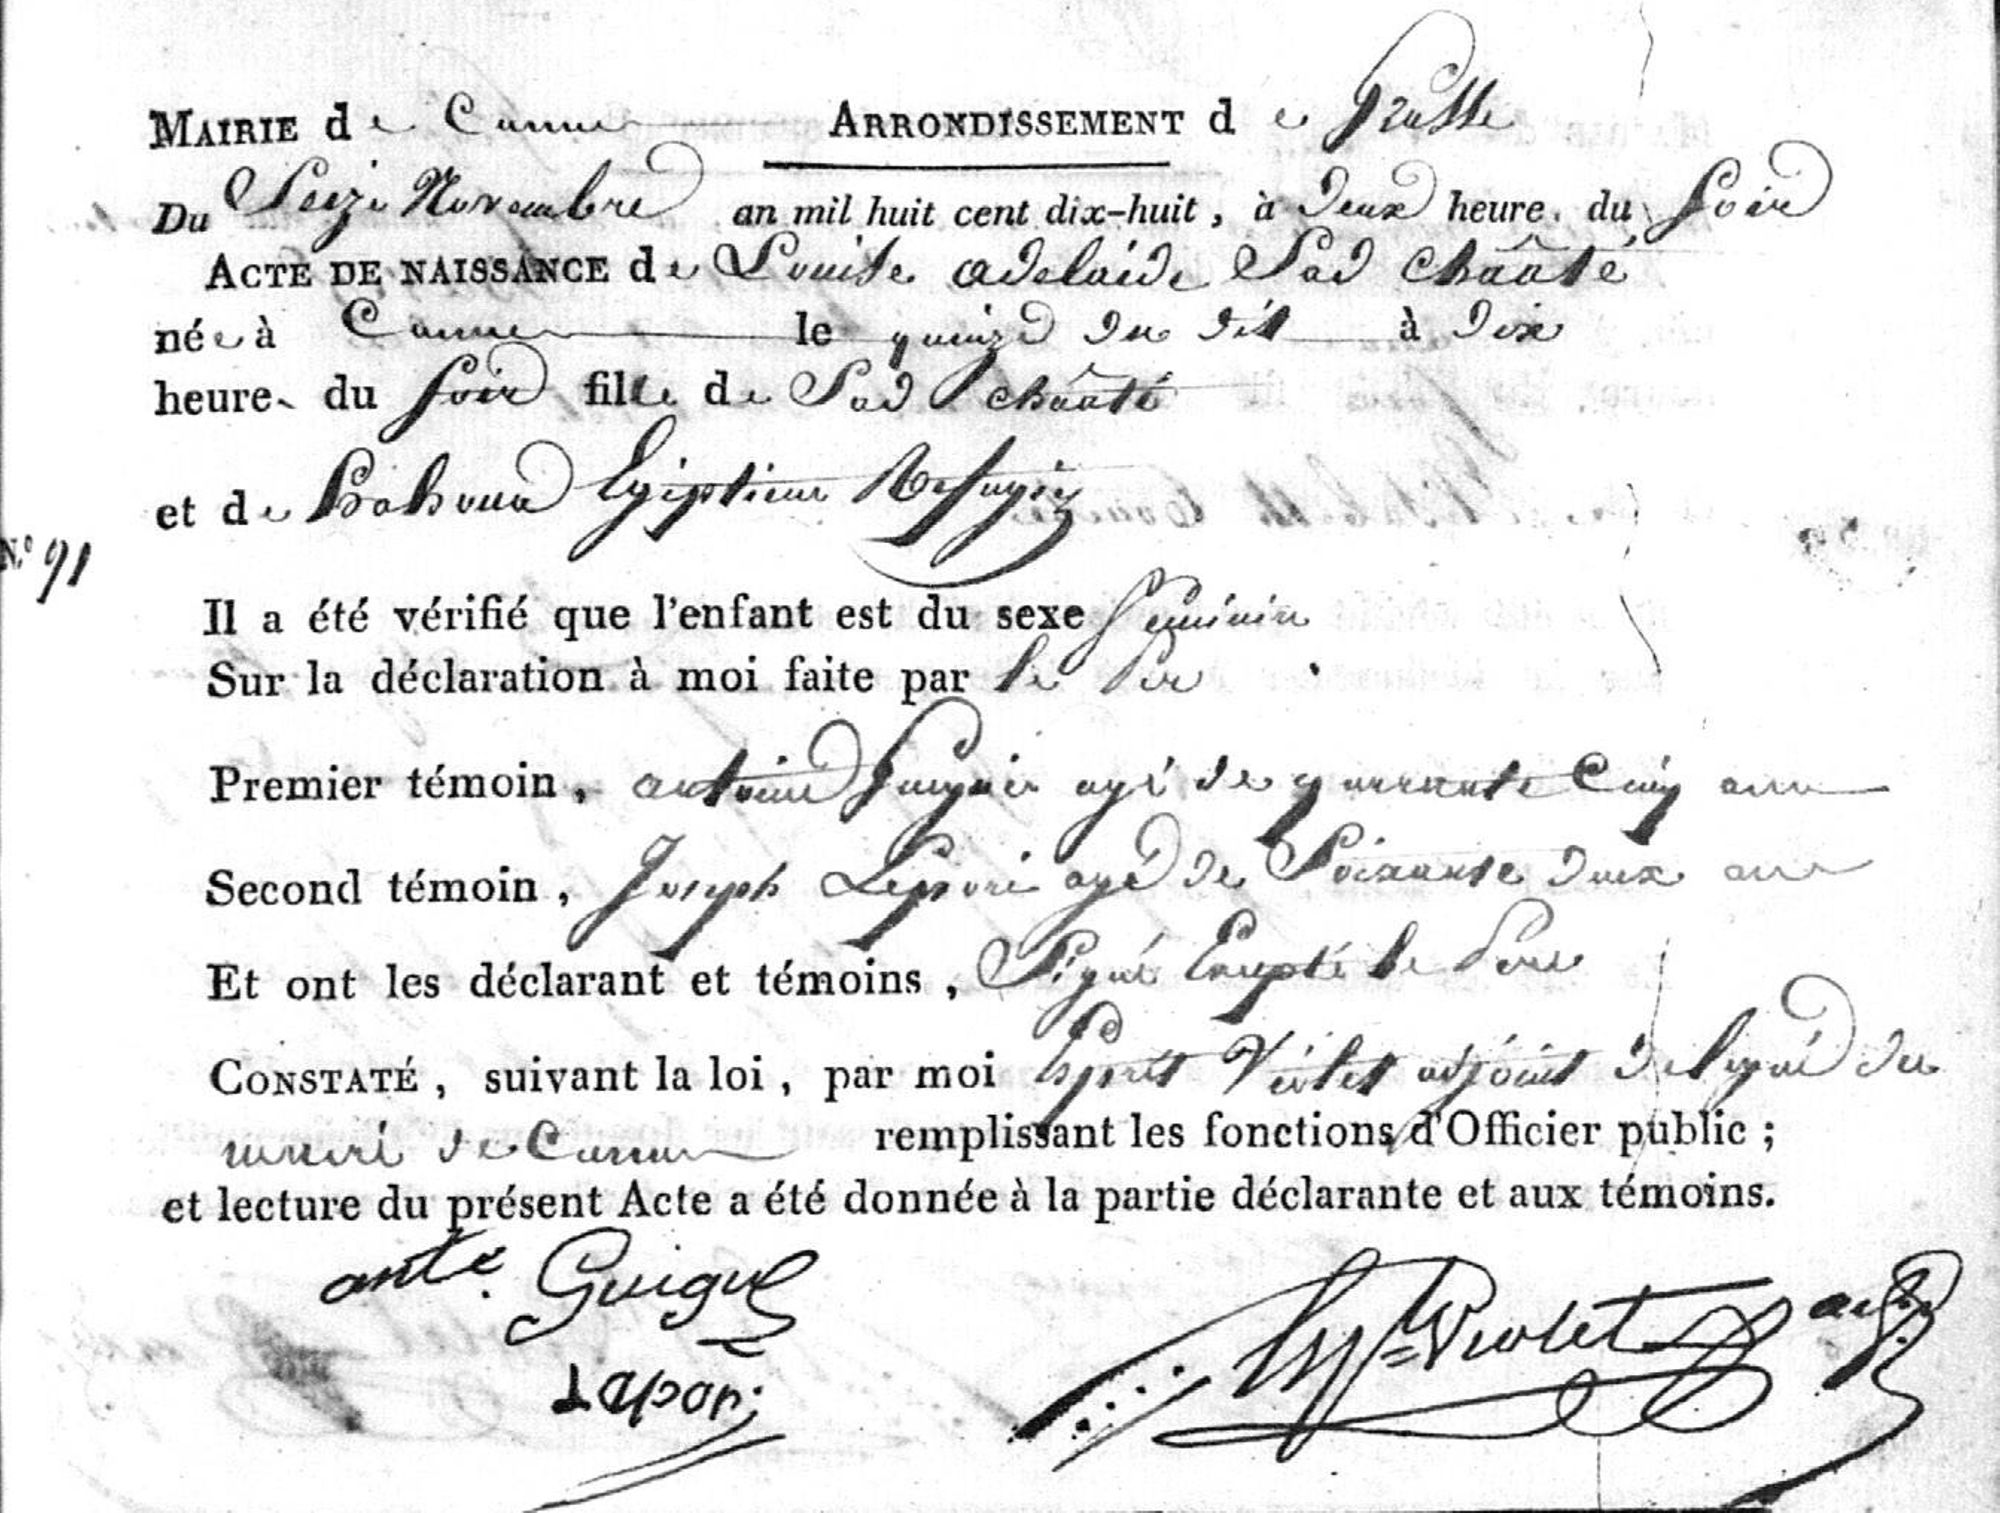 MAIRIE de Cannes ARRONDISSEMENT de Grasse
Du Seize Novembre an mil huit cent dix-huit, à deux heure. du soir
ACTE DE NAISSANCE de Louise adelaide Sad Chââté
née à Cannes le quinze du dit à dix
heure. du soir fille de Sad Chââté
et de Egiptiens Refugiez
N.º 91
Il a été vérifié que l'enfant est du sexe feminin
Sur la déclaration à moi faite par le Per
Premier témoin, antoine agé de quarante Cinq ans
Second témoin, Joseph Lepori agé de Soixante deux ans
Et ont les déclarant et témoins, Signé Excepté le Pere
CONSTATÉ, suivant la loi, par moi Esprit Violet adjoint delegué du
maire de Cannes remplissant les fonctions d'Officier public;
et lecture du présent Acte a été donnée à la partie déclarante et aux témoins.
ant.e Guigue
Lapori
Esp.t Violet adj.